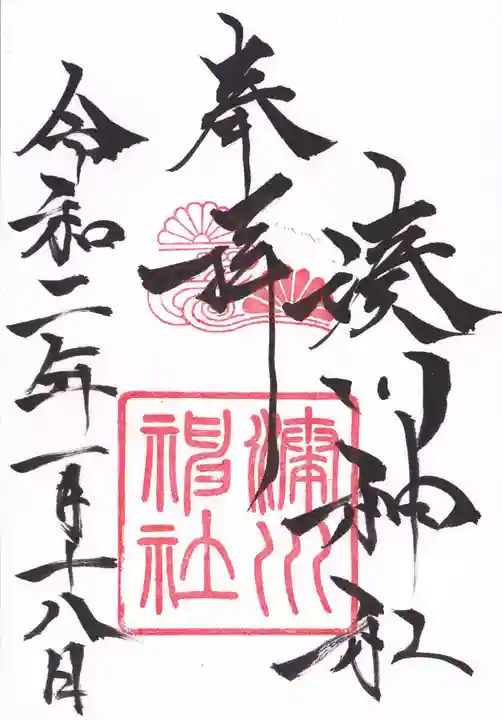 湊川神社
奉拝
令和二年一月十八日
湊川
神社